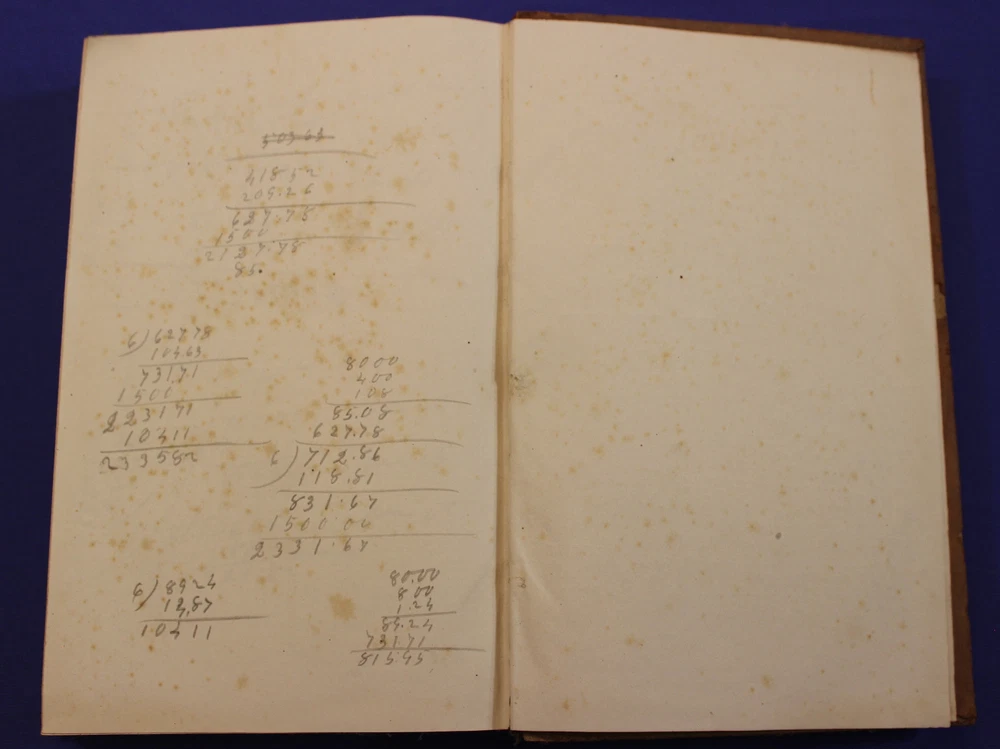 418 52
209.26
627.78
1500
2127.78
85.
6) 627 78
104.63
73171
1500
223171
10411
233582
8000
400
108
85.08
627.78
6) 712.86
118.81
831.67
1500.00
2331.67
6) 8924
14.87
10411
80.00
8 00
1.24
89.24
731.71